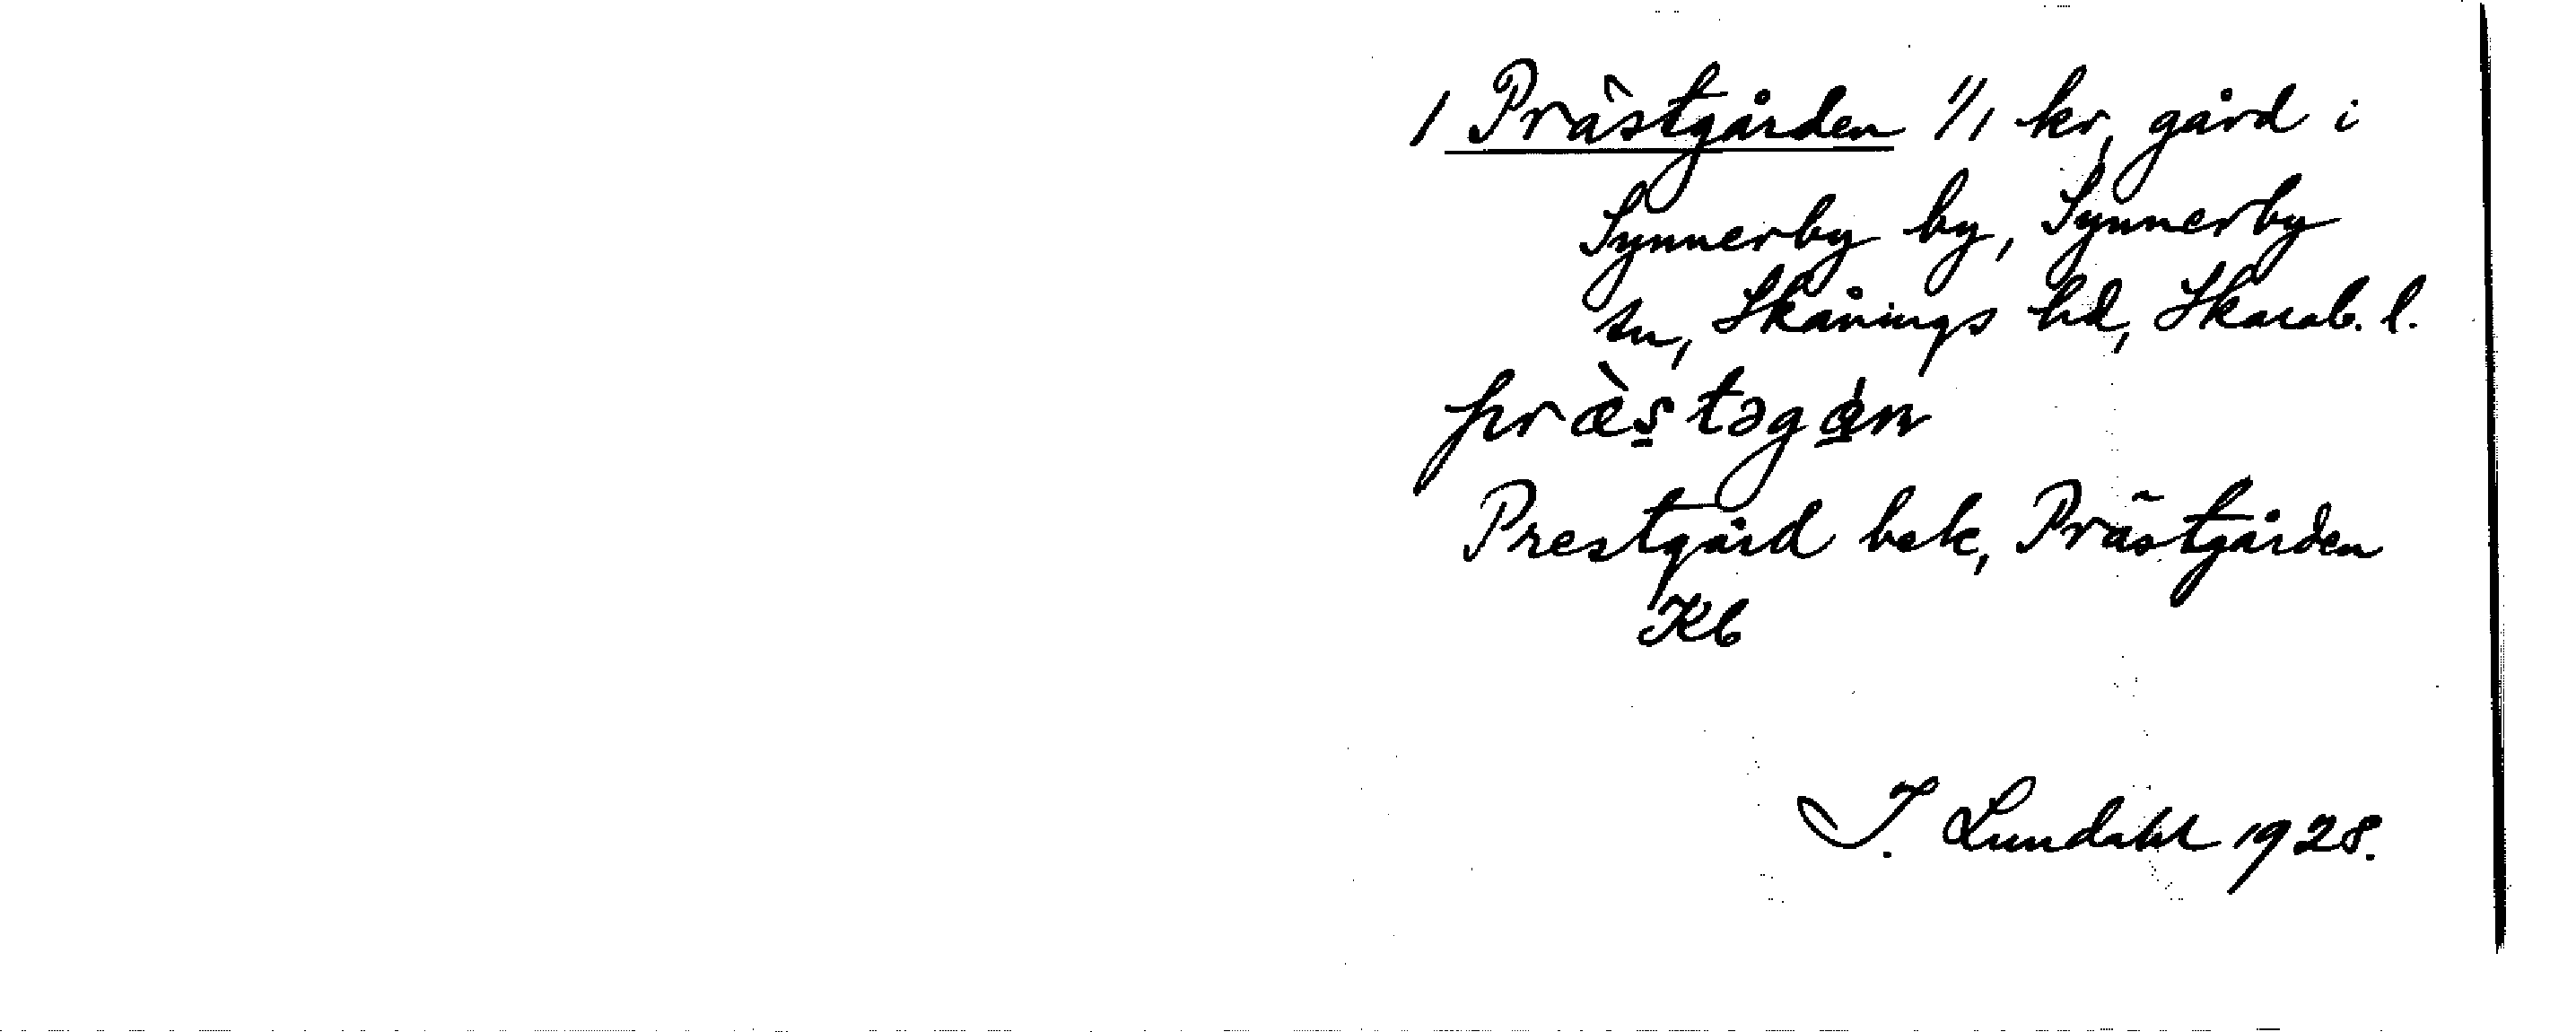 1 Prästgården 1/1 kr, gård i
Synnerby by, Synnerby
sn, Skånings hd, Skarab. l.
præ̀stəgán
Prestgård bek, Prästgården
Kb
I. Lundahl 1928.